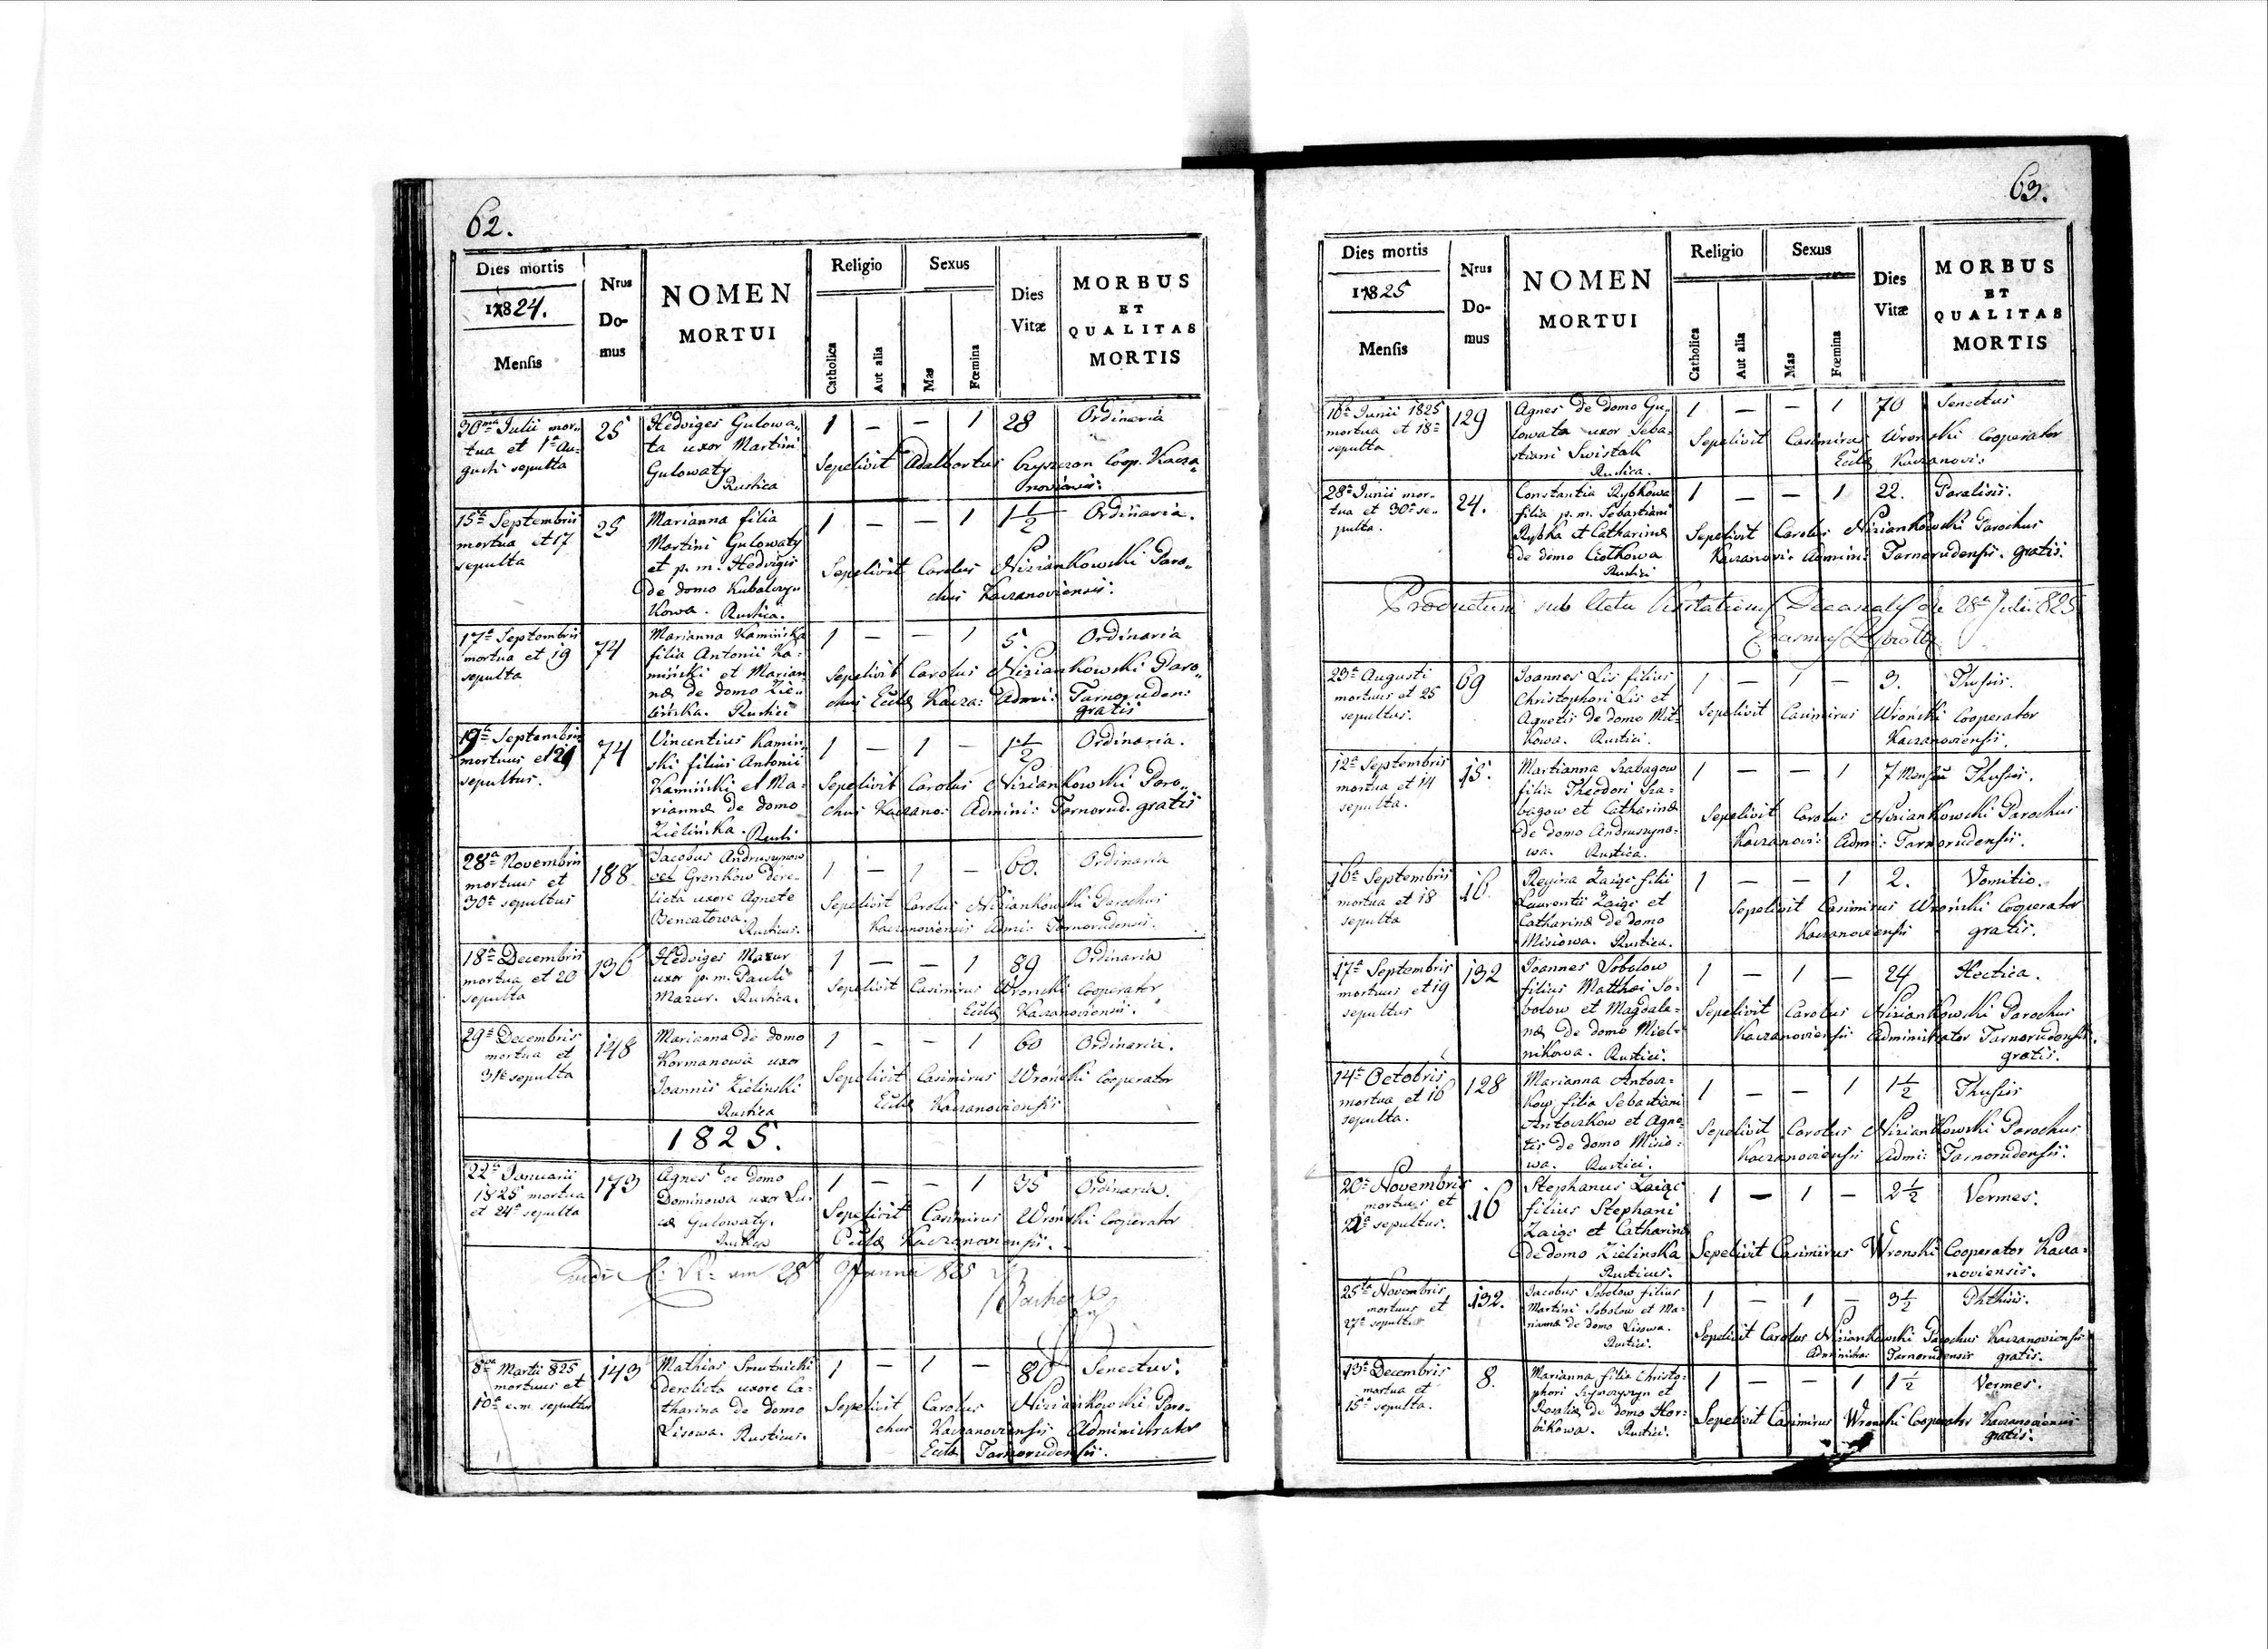 62.
Dies mortis
1824.
Mensis
Nrus
Do-
mus
NOMEN
MORTUI
Religio
Catholica
Aut alia
Sexus
Mas
Fœmina
Dies
Vitæ
MORBUS
ET
QUALITAS
MORTIS
30ma Julii mor-
tua et 1a Au-
gusti sepulta
25
Hedviges Gulowa-
ta uxor Martini
Gulowaty
Rustica
1 — — 1 28 Ordinaria
Sepelivit Adalbertus Coop. Kacza-
noviensis
15ta Septembris
mortua et 17
sepulta
25
Marianna filia
Martini Gulowaty
et p. m. Hedvigis
de domo
kowa. Rustica.
1 — — 1 1 1/2 Ordinaria.
Sepelivit Carolus Niziankowski Paro-
chus Kaczanoviensis.
17ta Septembris
mortua et 19
sepulta
74
Marianna Kamińska
filia Antonii Ka-
miński et Marian-
næ de domo Zie-
lińska. Rustici
1 — — 1 5. Ordinaria
Sepelivit Carolus Niziankowski Paro-
chus Eccłæ Kacza: Admi: Tarnoruden:
gratis
19ta Septembris
mortuus et 21
sepultus.
74
Vincentius Kamiń-
ski filius Antonii
Kamiński et Ma-
riannæ de domo
Zielińska. Rusti
1 — 1 — 1 1/2 Ordinaria.
Sepelivit Carolus Niziankowski Paro-
chus Kaczano: Admini: Tarnorud. gratis
28a Novembris
mortuus et
30a sepultus
188
Jacobus Andruszynow
vel Grenkow dere-
licta uxore Agnete
Bencatowa.
Rusticus.
1 — 1 — 60. Ordinaria
Sepelivit Carolus Niziankowski Parochus
Kaczanoviensis Admi: Tarnorudensis.
18a Decembris
mortua et 20
sepulta
136
Hedviges Mazur
uxor p. m. Pauli
Mazur. Rustica.
1 — — 1 89 Ordinaria
Sepelivit Casimirus Wroński Cooperator
Eccłæ Kaczanoviensis.
29a Decembris
mortua et
31a sepulta
148
Marianna de domo
Kormanowia uxor
Joannis Zieliński
Rustica
1 - - 1 60 Ordinaria.
Sepelivit Casimirus Wroński Cooperator
Eccłæ Kaczanoviensis
1825.
22a Januarii
1825 mortua
et 24a sepulta
173
Agnes de domo
Dominowa uxor Lu-
cæ Gulowaty.
Rustica
1 — — 1 35 Ordinaria.
Sepelivit Casimirus Wroński Cooperator
Eccłæ Kaczanoviensis.
28 825
8va Martii 825
mortuus et
10a e.m. sepultus
143
Mathias Smutnicki
derelicta uxore Ca-
tharina de domo
Lisowa. Rusticus.
1 — 1 — 80 Senectus.
Sepelivit Carolus Niziankowski Paro-
chus Kaczanoviensis Administrator
Eccłæ Tarnorudensis.
63.
Dies mortis
1825
Mensis
Nrus
Do-
mus
NOMEN
MORTUI
Religio
Catholica
Aut alia
Sexus
Mas
Fœmina
Dies
Vitæ
MORBUS
ET
QUALITAS
MORTIS
16a Junii 1825
mortua et 18a
sepulta
129
Agnes de domo Gu-
lowata uxor Seba-
stiani Swistak
Rustica.
1 — — 1 70 Senectus
Sepelivit Casimirus Wroński Cooperator
Eccłæ Kaczanovi:
28a Junii mor-
tua et 30a se-
pulta.
24.
Constantia Rybkowa
filia p. m. Sebastiani
Rybka et Catharinæ
de domo Ciotkowa
Rustici
1 — — 1 22. Paralisis.
Sepelivit Carolus Niziankowski Parochus
Kaczanovi: Admini: Tarnorudensis. gratis.
Productum sub Actu Visitationis Decanalis die 28a Julii 825
23a Augusti
mortuus et 25
sepultus.
69
Joannes Lis filius
Christophori Lis et
Agnetis de domo Mit-
kowa. Rustici.
1 — 1 — 3. Thussis.
Sepelivit Casimirus Wroński Cooperator
Kaczanoviensis.
12a Septembris
mortua et 14
sepulta.
15.
Martianna Szabagow
filia Theodori Sza-
bagow et Catharinæ
de domo Andruszyno-
wa. Rustica.
1 — — 1 7 Mensium Thussis.
Sepelivit Carolus Niziankowski Parochus
Kaczanovi: Admi: Tarnorudensis.
16a Septembris
mortua et 18
sepulta
16.
Regina Zaigc filii
Laurentii Zaigc et
Catharinæ de domo
Misiowa. Rustica.
1 — — 1 2. Vomitio.
Sepelivit Casimirus Wroński Cooperator
Kaczanoviensis gratis.
17a Septembris
mortuus et 19
sepultus
132
Joannes Sobolow
filius Matthæi So-
bolow et Magdale-
næ de domo Miel-
nikowa. Rustici.
1 — 1 — 24 Hectica.
Sepelivit Carolus Niziankowski Parochus
Kaczanoviensis Administrator Tarnorudensis.
gratis.
14a Octobris
mortua et 16
sepulta.
128
Marianna Antosz-
kow filia Sebastiani
Antoszkow et Agne-
tis de domo Misio-
wa. Rustici.
1 — — 1 1 1/2 Thussis
Sepelivit Carolus Niziankowski Parochus
Kaczanoviensis Admi: Tarnorudensis.
20a Novembris
mortuus et
22a sepultus.
16
Stephanus Zaigc
filius Stephani
Zaigc et Catharinæ
de domo Zielinska
Rusticus.
1 — 1 — 2 1/2 Vermes.
Sepelivit Casimirus Wronski Cooperator Kacza-
noviensis.
25ta Novembris
mortuus et
27a sepultus
132.
Jacobus Sobolow filius
Martini Sobolow et Ma-
riannæ de domo Lisowa.
Rustici.
1 — 1 — 3 1/2 Phthisis.
Sepelivit Carolus Niziankowski Parochus Kaczanoviensis
Administra: Tarnorudensis gratis.
13a Decembris
mortua et
15a sepulta.
8.
Marianna filia Christo-
phori et
Rosaliæ de domo Hor-
bikowa. Rustici.
1 — — 1 1 1/2 Vermes.
Sepelivit Casimirus Wronski Cooperator Kaczanoviensis
gratis.